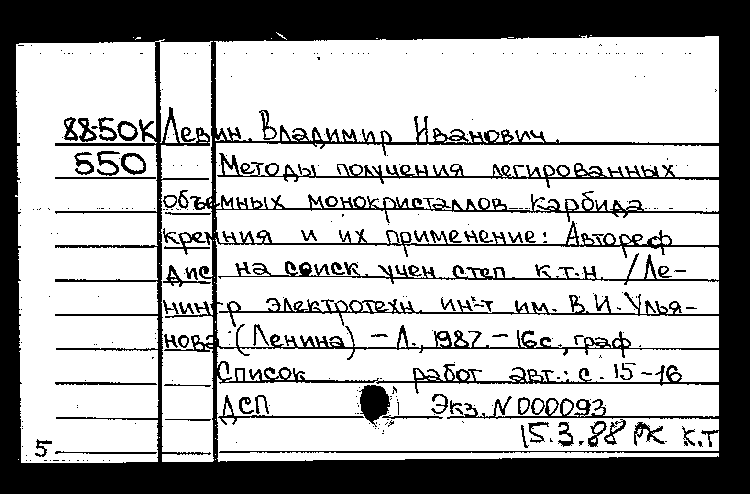 88-50К Левин. Владимир Иванович.
550 Методы получения легированных
объемных монокристаллов карбида
кремния и их применение: Автореф
дис. на соиск. учен. степ. к.т.н. /Ле-
нингр электротехн. ин-т им. В.И. Улья-
нова (Ленина) – Л., 1987. – 16с., граф.
Список работ авт.: с. 15-16
ДСП Экз. N 000093
15.3.88 РК К.Т
5.